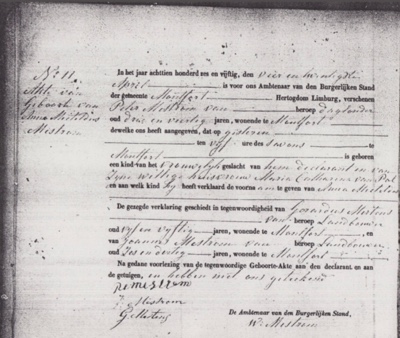 No 11.
Akte van
Geboorte van
Anna Mechtildis
Mestrom
In het jaar achttien honderd zes en vijftig, den vier en twintigste
April is voor ons Ambtenaar van den Burgerlijken Stand
der gemeente Montfort Hertogdom Limburg, verschenen
Peter Mestrom van beroep daglooner
oud drie en veertig jaren, wonende te Montfort
dewelke ons heeft aangegeven, dat op gisteren
ten vijf ure savons te
Montfort is geboren
een kind van vrouwelijk geslacht van hem declarant en van
zijne wettige huisvrouw Maria Catharina van Pol
en aan welk kind hij heeft verklaard de voorna te geven van Anna Mechtildis
De gezegde verklaring geschiedt in tegenwoordigheid van Gerardus Mertens
van beroep Landbouwer
oud vijf en vijftig jaren, wonende te Montfort, en
van Joannes Mestrom van beroep Landbouwer
oud zes en dertig jaren, wonende te Montfort
Na gedane voorlezing van de tegenwoordige Geboorte-Akte aan den declarant en aan
de getuigen, en hebben met ons geteekend
P Mestrom
J. Mestrom
G. Mertens
De Ambtenaar van den Burgerlijken Stand,
W. Mestrom